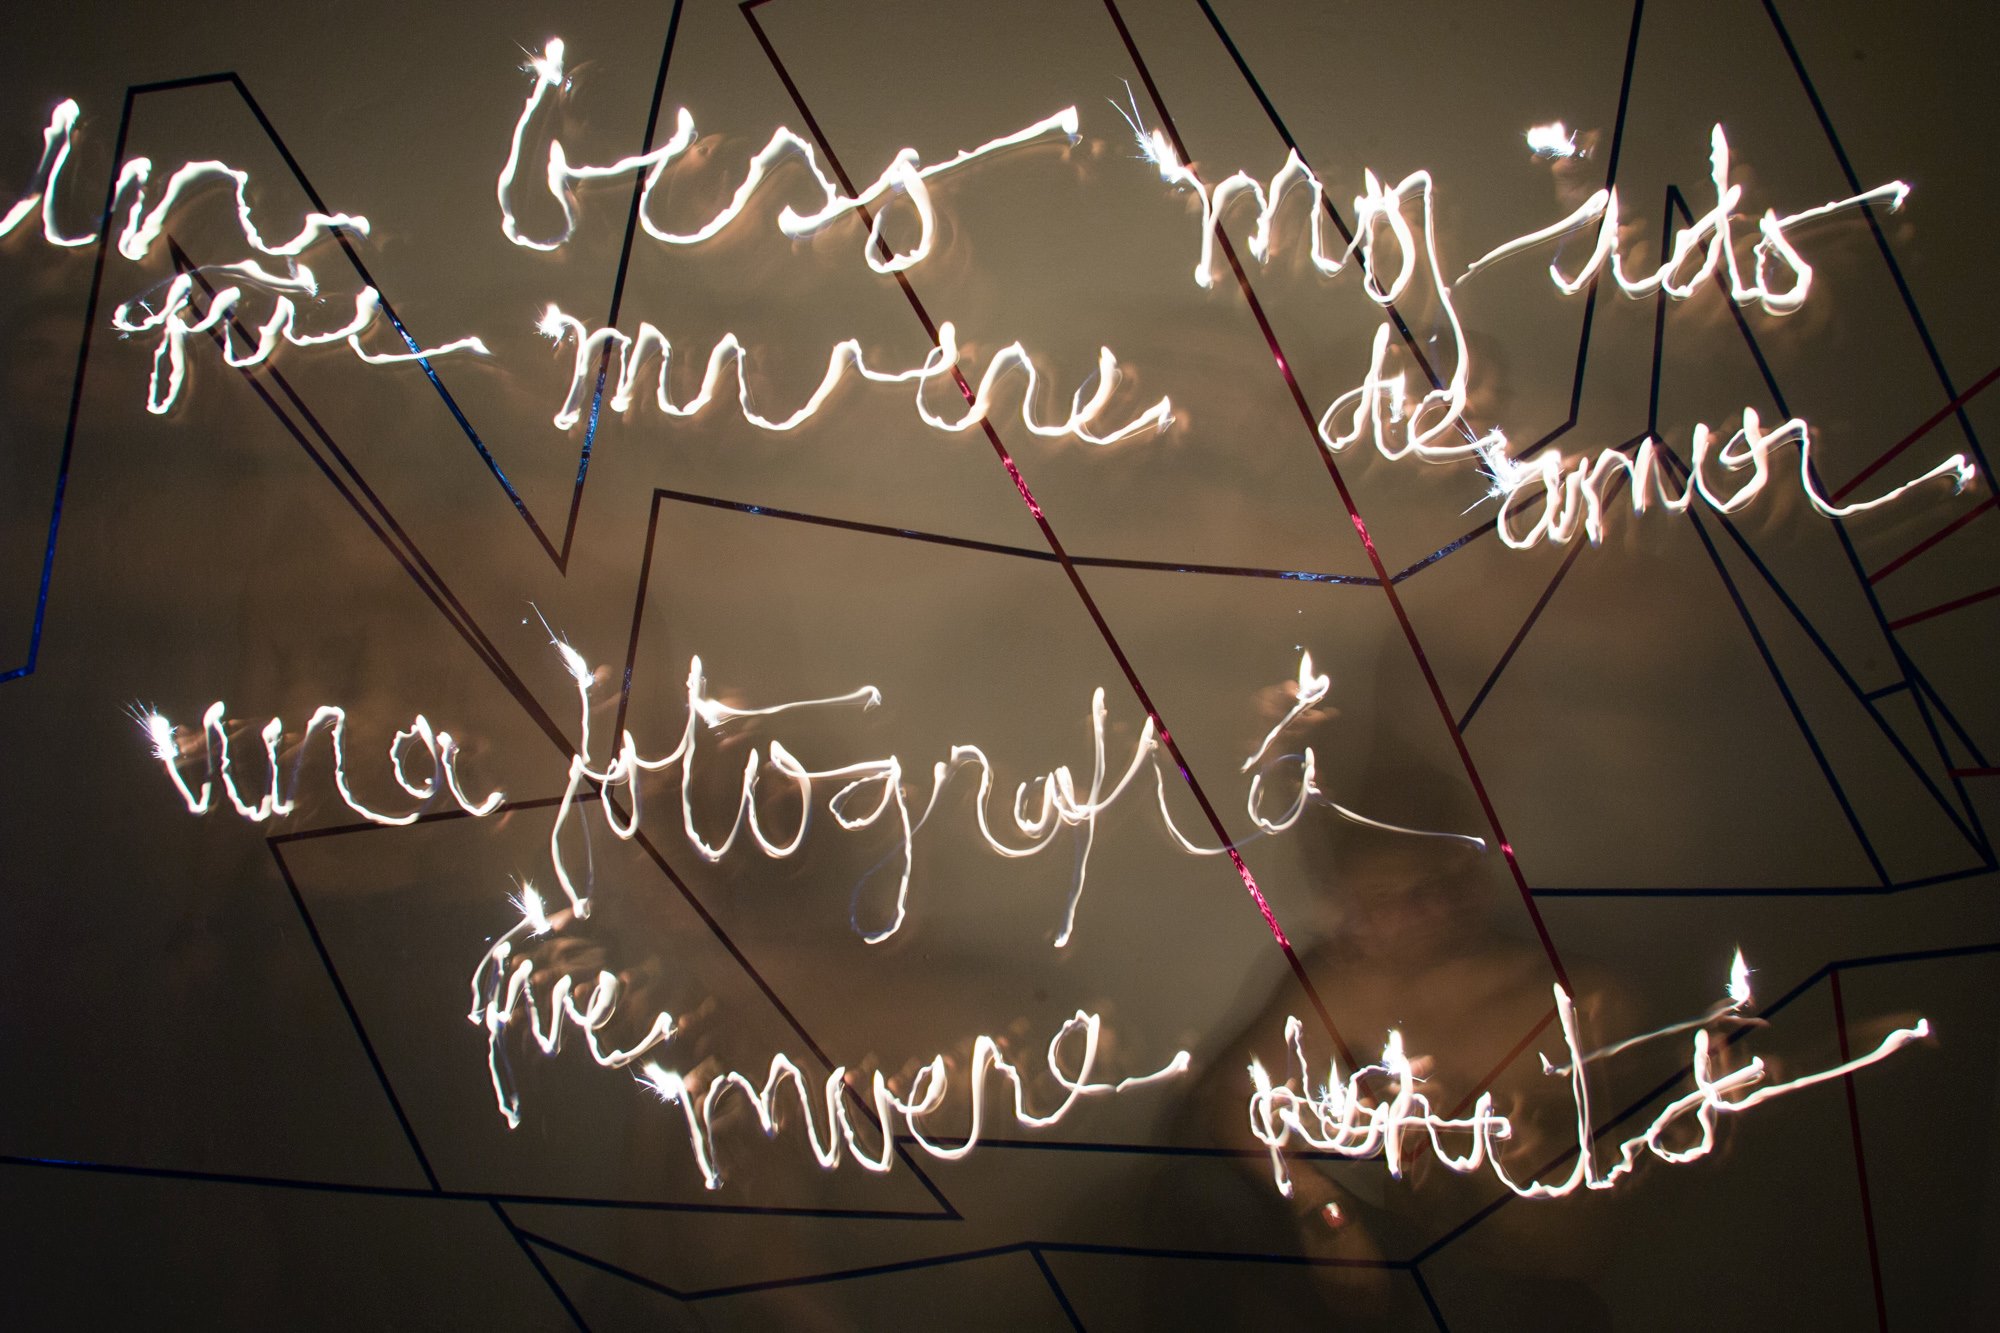 un beso mojado
que muere de amor
una fotografía
que muere